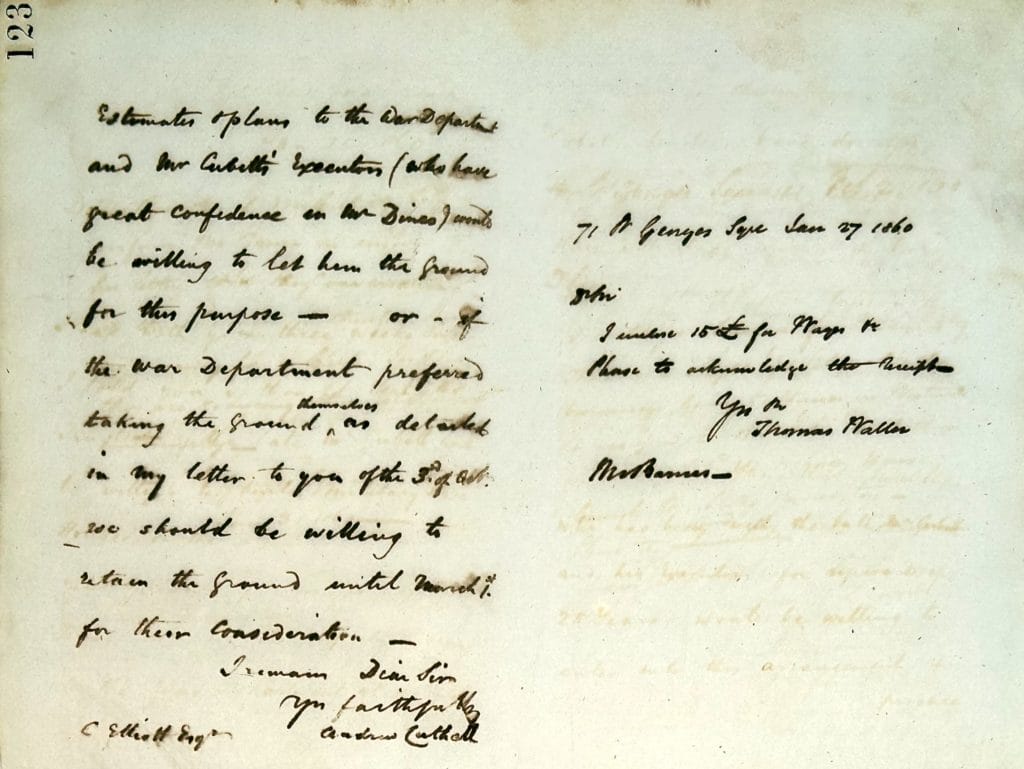 123
Estimates & plans to the War Department
and Mr Cubitt's Executors (who have
great confidence in Mr Dines) would
be willing to let him the ground
for this purpose — or - if
the War Department preferred
taking the ground themselves as detailed
in my letter to you of the 3rd of Oct.
we should be willing to
retain the ground until March 1st.
for their consideration —
I remain Dear Sir
Yrs faithfully
Andrew Cuthell
C Elliott Esqr
71 St Georges Sqre Jan 27 1860
Sir
I inclose 15 £ for Wages &c
Please to acknowledge the receipt
Yrs
Thomas Waller
Mr Barnes —